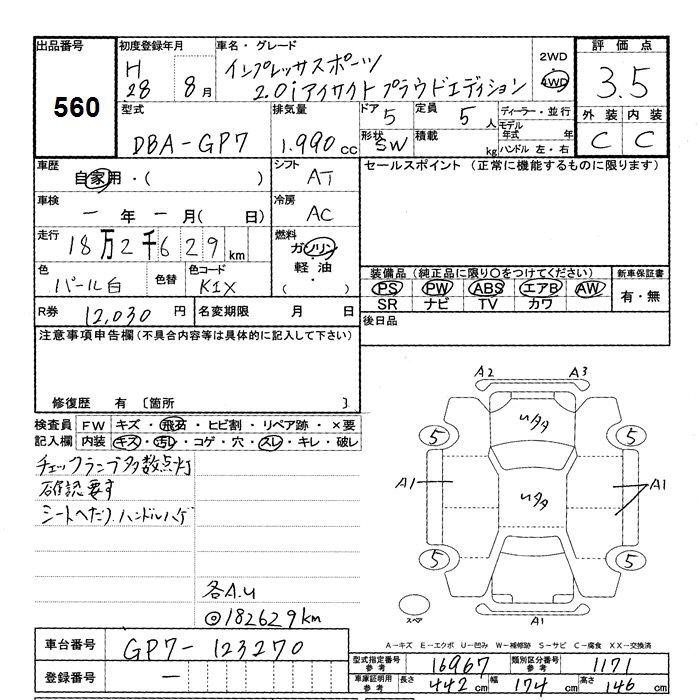 出品番号 初度登録年月 車名・グレード 2WD 評価点
560 H28 8月 インプレッサスポーツ 4WD 3.5
2.0iアイサイトプラウドエディション
型式 排気量 ドア 5 定員 5人 ディーラー・並行 外装 内装
DBA-GP7 1.990cc 形状 SW 積載 kg モデル年式 年 C C
ハンドル 左・右
車歴 自家用・( ) シフト AT セールスポイント (正常に機能するものに限ります)
車検 ー年ー月( 日) 冷房 AC
走行 18万2千629km 燃料 ガソリン
軽油
・
( )
色 パール白 色替 色コード K1X
装備品(純正品に限り○をつけてください) 新車保証書
PS PW ABS エアB AW 有・無
SR ナビ TV カワ
R券 12,030円 名変期限 月 日 後日品
注意事項申告欄(不具合内容等は具体的に記入して下さい)
修復歴 有 〔箇所 〕
検査員 FW キズ・飛石・ヒビ割・リペア跡・×要
記入欄 内装 キズ・汚レ・コゲ・穴・スレ・キレ・破レ
チェックランプ多数点灯
確認要す
シートへたり.ハンドルハゲ
各A.U
◎182629km
A2 A3
5 5
A1 A1
5 5
スペア
A1
A-キズ E-エクボ U-凹み W-補修跡 S-サビ C-腐食 XX-交換済
車台番号 GP7-123270
登録番号 ー
型式指定番号 参考 16967 類別区分番号 参考 1171
車庫証明用 参考 長さ 442cm 幅 174cm 高さ 146cm